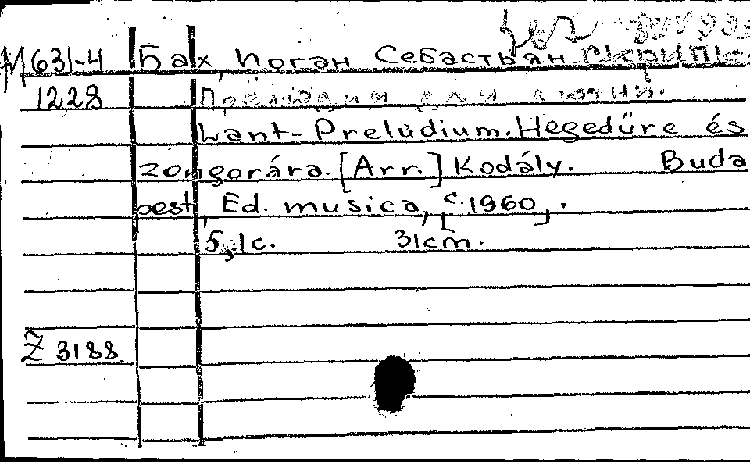 М631-4 Бах, Йоган Себастьян
1228
Lant-Preludium. Hegedűre és
zongorára. [Arr.] Kodály. Buda
pest, Ed. musica, [c.1960].
5,1c. 31cm.
Z 3188